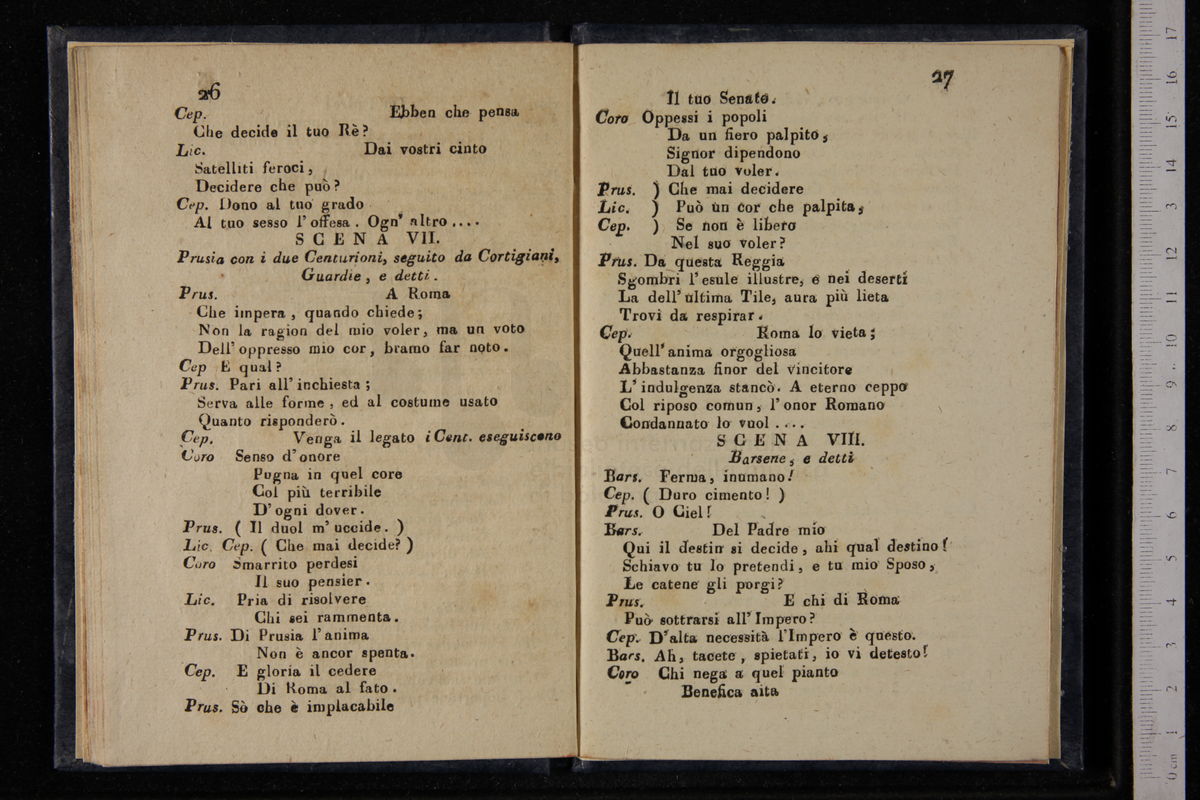 26
Cep. Ebben che pensa
Che decide il tuo Rè?
Lic. Dai vostri cinto
Satelliti feroci,
Decidere che può?
Cep. Dono al tuo grado
Al tuo sesso l'offesa. Ogn' altro....
SCENA VII.
Prusia con i due Centurioni, seguito da Cortigiani,
Guardie, e detti.
Prus. A Roma
Che impera, quando chiede;
Non la ragion del mio voler, ma un voto
Dell'oppresso mio cor, bramo far noto.
Cep E qual?
Prus. Pari all'inchiesta;
Serva alle forme, ed al costume usato
Quanto risponderò.
Cep. Venga il legato i Cent. eseguiscono
Coro Senso d'onore
Pugna in quel core
Col più terribile
D'ogni dover.
Prus. ( Il duol m'uccide. )
Lic. Cep. ( Che mai decide? )
Coro Smarrito perdesi
Il suo pensier.
Lic. Pria di risolvere
Chi sei rammenta.
Prus. Di Prusia l'anima
Non è ancor spenta.
Cep. E gloria il cedere
Di Roma al fato.
Prus. Sò che è implacabile
27
Il tuo Senato.
Coro Oppessi i popoli
Da un fiero palpito,
Signor dipendono
Dal tuo voler.
Prus. ) Che mai decidere
Lic. ) Può un cor che palpita,
Cep. ) Se non è libero
Nel suo voler?
Prus. Da questa Reggia
Sgombri l'esule illustre, e nei deserti
La dell'ultima Tile, aura più lieta
Trovi da respirar.
Cep. Roma lo vieta;
Quell'anima orgogliosa
Abbastanza finor del vincitore
L'indulgenza stancò. A eterno ceppo
Col riposo comun, l'onor Romano
Condannato lo vuol....
SCENA VIII.
Barsene, e detti
Bars. Ferma, inumano!
Cep. ( Duro cimento! )
Prus. O Ciel!
Bars. Del Padre mio
Qui il destin si decide, ahi qual destino!
Schiavo tu lo pretendi, e tu mio Sposo,
Le catene gli porgi?
Prus. E chi di Roma
Può sottrarsi all'Impero?
Cep. D'alta necessità l'Impero è questo.
Bars. Ah, tacete, spietati, io vi detesto!
Coro Chi nega a quel pianto
Benefica aita
17
16
15
14
13
12
11
10
9
8
7
6
5
4
3
2
1
0 cm